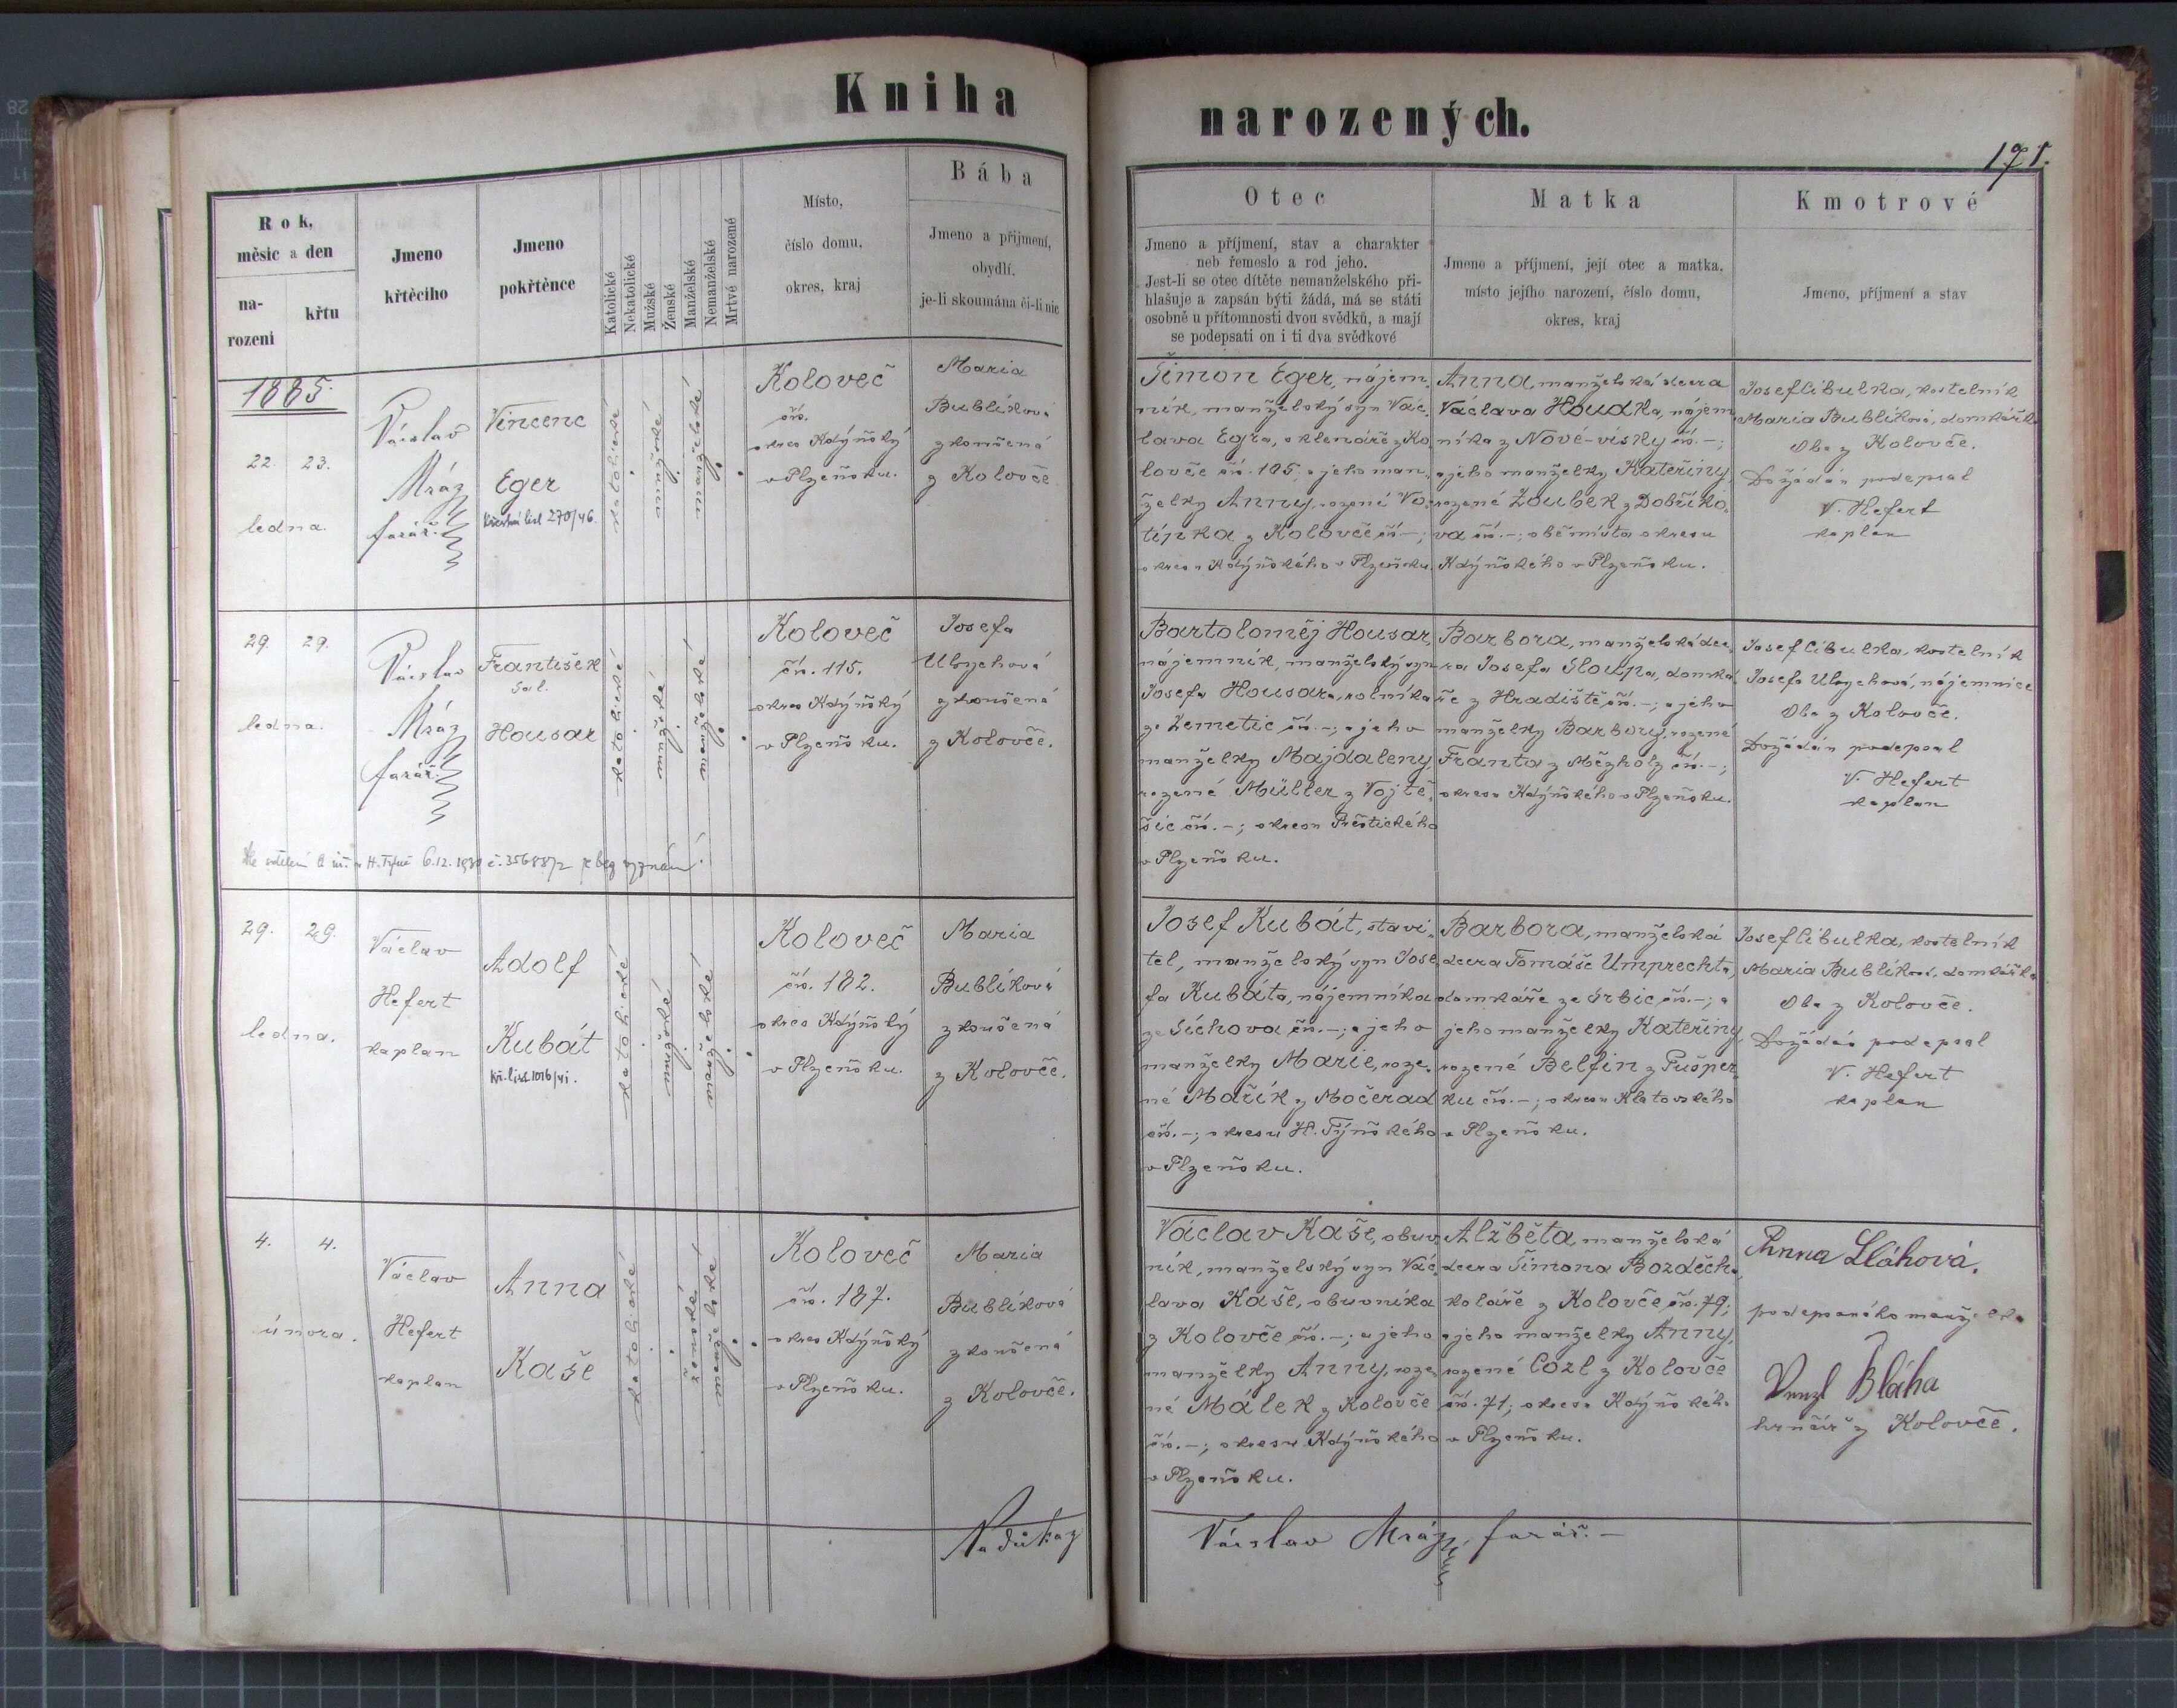 Kniha
narozených.
171.
Rok,
měsíc a den
na-
rozeni
křtu
Jmeno
křtěcího
Jmeno
pokřtěnce
Katolické
Nekatolické
Mužské
Ženské
Manželské
Nemanželské
Mrtvě narozené
Místo,
číslo domu,
okres, kraj
Bába
Jmeno a přijmení,
obydlí.
je-li skoumána či-li nic
Otec
Jmeno a příjmení, stav a charakter
neb řemeslo a rod jeho.
Jest-li se otec dítěte nemanželského při-
hlašuje a zapsán býti žádá, má se státi
osobně u přítomnosti dvou svědků, a mají
se podepsati on i ti dva svědkové
Matka
Jmeno a příjmení, její otec a matka,
místo jejího narození, číslo domu,
okres, kraj
Kmotrové
Jmeno, příjmení a stav
1885.
22. 23.
ledna.
Václav
Mráz
farář.
Vincenc
Eger
Křestní list 270/46.
katolické
mužské
manželské
Koloveč
čís.
okres Kdýňský
v Plzeňsku.
Maria
Bublíková
zkoušená
z Kolovče
Šimon Eger, nájem-
ník, manželský syn Vác-
lava Egra, sklenáře z Ko-
lovče čís. 185; a jeho man-
želky Anny, rozené Vo-
típka z Kolovče čís. –;
okresu Kdýňského v Plzeňsku.
Anna, manželská dcera
Václava Houdka, nájem-
níka z Nové-vísky čís. –;
a jeho manželky Kateřiny,
rozené Zoubek z Dobříko-
va čís. –; obě místa okresu
Kdýňského v Plzeňsku.
Josef Cibulka, kostelník
Maria Bublíková, domkářka
Oba z Kolovče.
Dožádán podepsal
V. Hefert
kaplan
29. 29.
ledna.
Václav
Mráz
farář.
František
Sal.
Housar
katolické
mužské
manželské
Koloveč
čís. 115.
okres Kdýňský
v Plzeňsku.
Josefa
Ulrychová
zkoušená
z Kolovče.
6.12.1950 č. 35688/2 je bez vyznání.
Bartoloměj Housar,
nájemník, manželský syn
Josefa Housara, rolníka
ze Zemetic čís. –; a jeho
manželky Majdaleny,
rozené Müller z Vojtě-
šic čís. –; okresu Přeštického
v Plzeňsku.
Barbora, manželská dce-
ra Josefa Sloupa, domká-
ře z Hradiště čís. –; a jeho
manželky Barbory, rozené
Franta z Mězholz čís. –;
okresu Kdýňského v Plzeňsku.
Josef Cibulka, kostelník
Josefa Ulrychová, nájemnice
Oba z Kolovče.
Dožádán podepsal
V. Hefert
kaplan
29. 29.
ledna.
Václav
Hefert
kaplan
Adolf
Kubát
Kř. list 1016/41.
katolické
mužské
manželské
Koloveč
čís. 182.
okres Kdýňský
v Plzeňsku.
Maria
Bublíková
zkoušená
z Kolovče.
Josef Kubát, stavi-
tel, manželský syn Jose-
fa Kubáta, nájemníka
ze Síchova čís. –; a jeho
manželky Marie, roze-
né Mařík z Močerad
čís. –; okresu H. Týnského
v Plzeňsku.
Barbora, manželská
dcera Tomáše Umprechta,
domkáře ze Srbic čís. –; a
jeho manželky Kateřiny,
rozené Belfin z Pušper-
ku čís. –; okresu Klatovského
v Plzeňsku.
Josef Cibulka, kostelník
Maria Bublíková, domkářka
Oba z Kolovče.
Dožádán podepsal
V. Hefert
kaplan
4. 4.
února.
Václav
Hefert
kaplan
Anna
Kaše
katolické
ženské
manželské
Koloveč
čís. 187.
okres Kdýňský
v Plzeňsku.
Maria
Bublíková
zkoušená
z Kolovče.
Václav Kaše, obuv-
ník, manželský syn Vác-
lava Kaše, obuvníka
z Kolovče čís. –; a jeho
manželky Anny, roze-
né Málek z Kolovče
čís. –; okresu Kdýňského
v Plzeňsku.
Alžběta, manželská
dcera Šimona Bozděch,
koláře z Kolovče čís. 79;
a jeho manželky Anny,
rozené Cozl z Kolovče
čís. 71; okresu Kdýňského
v Plzeňsku.
Anna Bláhová.
podepsaného manželka
Venzl Bláha
hrnčíř z Kolovče.
Na důkaz
Václav Mráz, farář. –